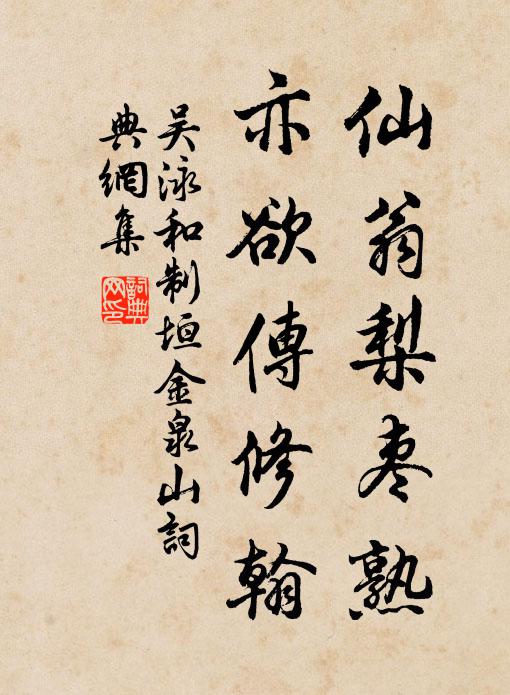 仙翁梨枣熟
亦欲傳修翰
吴泳和制垣金泉山詞
典網集
詞典網印